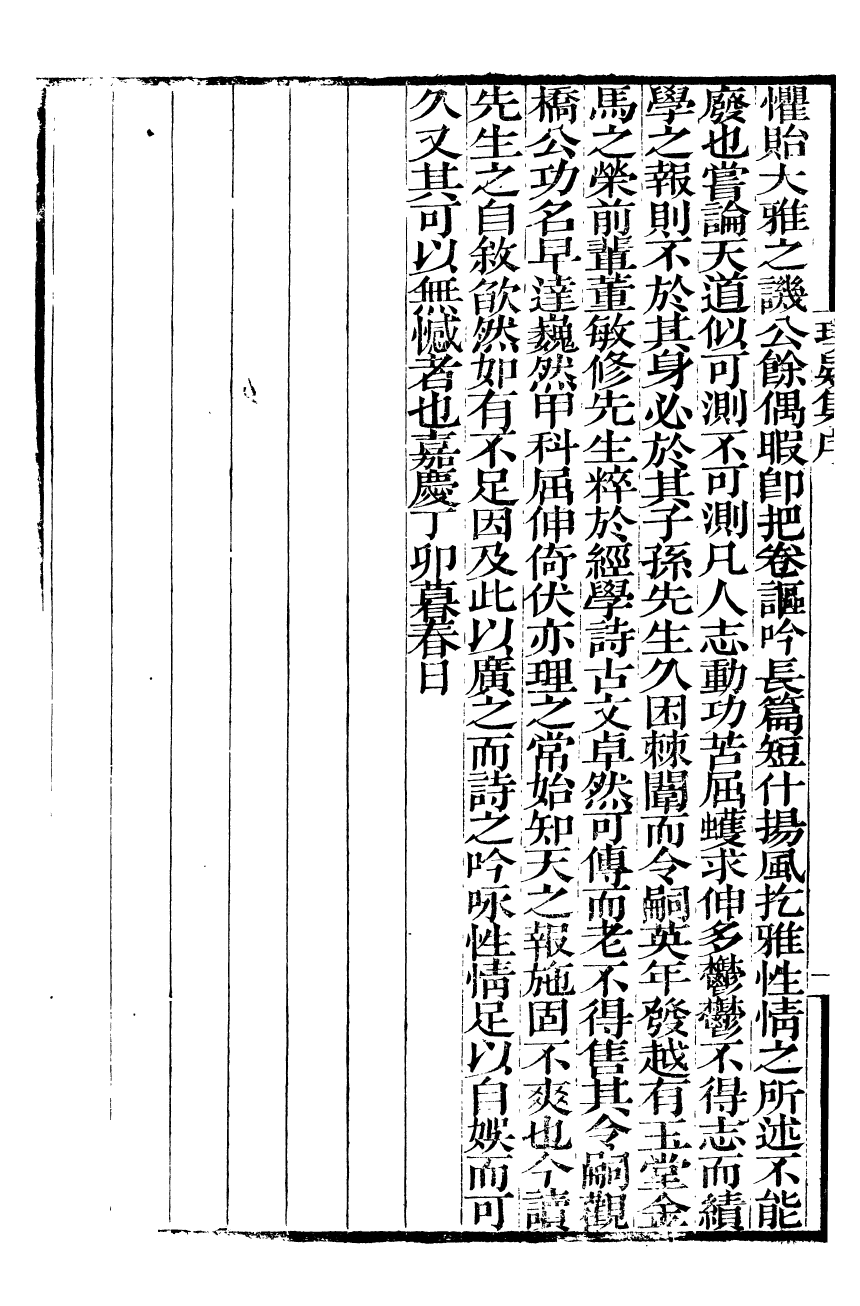 懼貽大雅之譏公餘偶暇卽把卷謳吟長篇短什揚風扢雅性情之所述不能
廢也嘗論天道似可測不可測凡人志動功苦屈蠖求伸多鬱鬱不得志而績
學之報則不於其身必於其子孫先生久困棘闈而令嗣英年發越有玉堂金
馬之榮前輩董敏修先生粹於經學詩古文卓然可傳而老不得售其令嗣觀
橋公功名早達巍然甲科屈伸倚伏亦理之常始知天之報施固不爽也今讀
先生之自敘欿然如有不足因及此以廣之而詩之吟咏性情足以自娛而可
久又其可以無憾者也嘉慶丁卯暮春日
集序
一